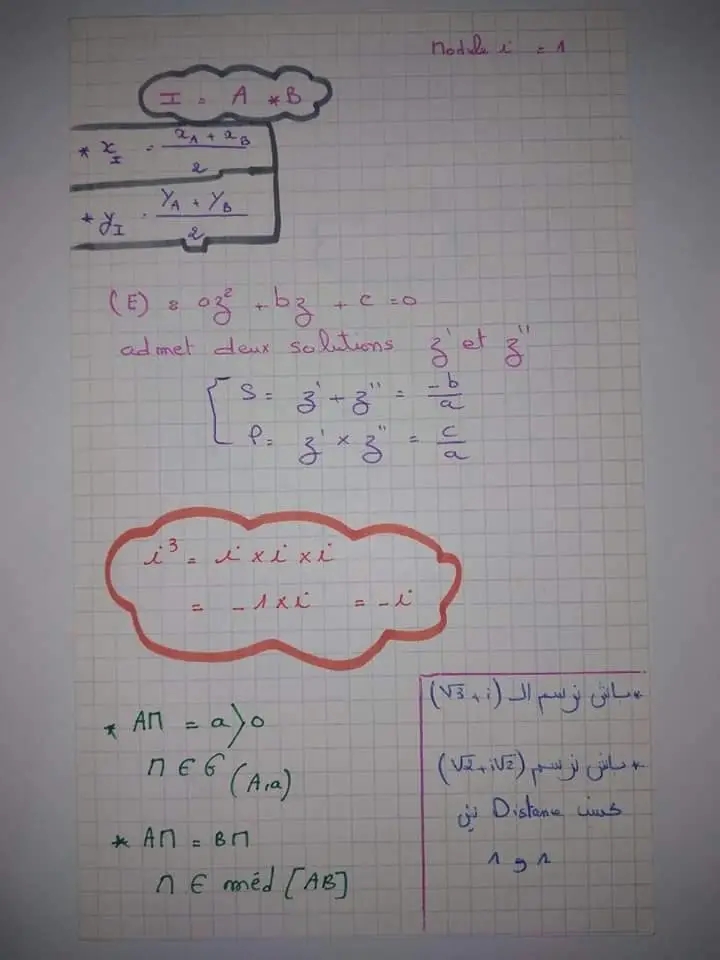 Module i = 1
I = A * B
* x_I = (x_A + x_B)/2
* y_I = (y_A + y_B)/2
(E) : az² + bz + c = 0
admet deux solutions z' et z''
S = z' + z'' = -b/a
P = z' × z'' = c/a
i³ = i × i × i
= -1 × i = -i
* AM = a > 0
M ∈ C(A,a)
* AM = BM
M ∈ méd [AB]
* باش نرسم الـ (√3 + i)
* باش نرسم (√2 + i√2)
Distance بين
1 و 1